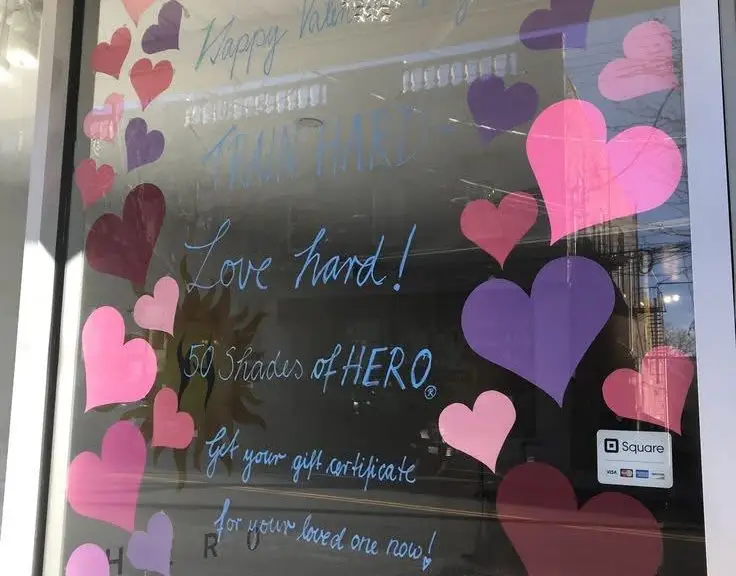 Happy Valentine's Day
TRAIN HARD!
Love hard!
50 Shades of HERO®
Get your gift certificate
for your loved one now!
HERO
Square
VISA